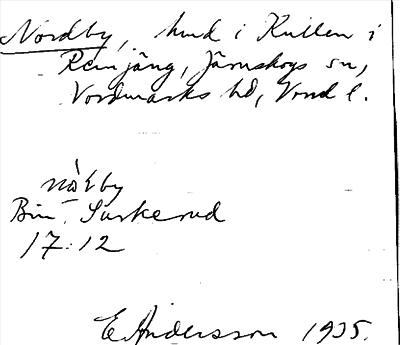 Nordby, hmd i Kullen i
Remjäng, Järnskogs sn,
Nordmarks hd, Vrml l.
nòḷby
Bin. Surkerud
17:12
E. Andersson 1935.